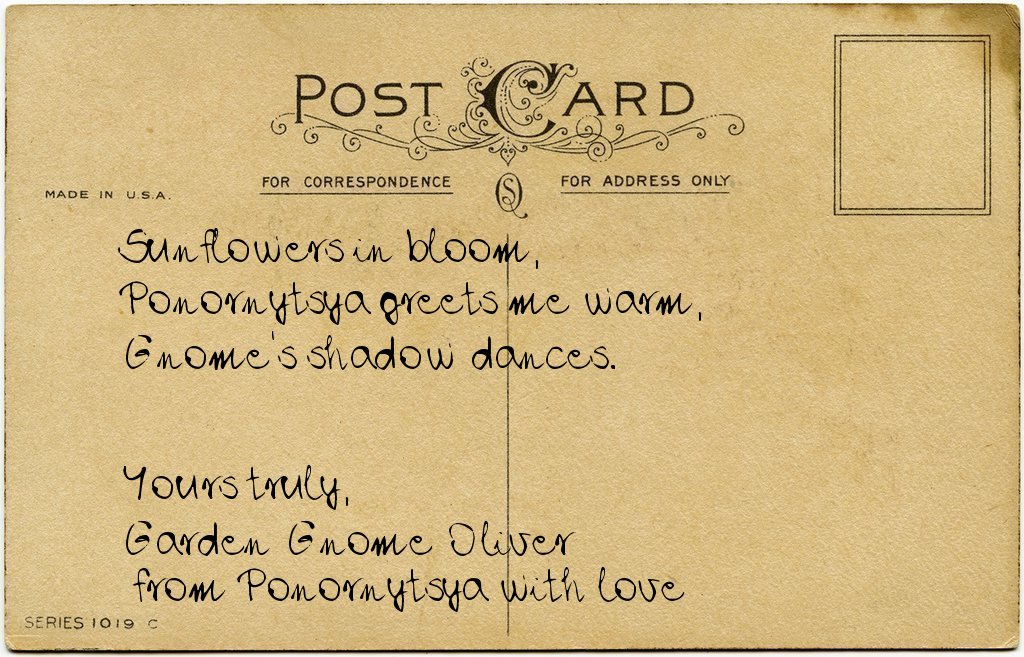 POST CARD
FOR CORRESPONDENCE
FOR ADDRESS ONLY
MADE IN U.S.A.
Sunflowers in bloom,
Ponornytsya greets me warm,
Gnome's shadow dances.
Yours truly,
Garden Gnome Oliver
from Ponornytsya with love
SERIES 1019 C